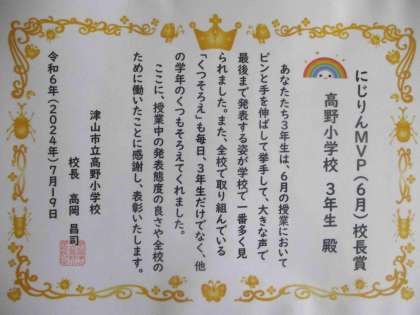 にじりんMVP(6月)校長賞
高野小学校 3年生 殿
あなたたち3年生は、6月の授業において
ピンと手を伸ばして挙手して、大きな声で
最後まで発表する姿が学校で一番多く見
られました。また、全校で取り組んでいる
「くつそろえ」も毎日、3年生だけでなく、他
の学年のくつもそろえてくれました。
ここに、授業中の発表態度の良さや全校の
ために働いたことに感謝し、表彰いたします。
津山市立高野小学校
校長 高岡 昌司
令和6年(2024年)7月19日